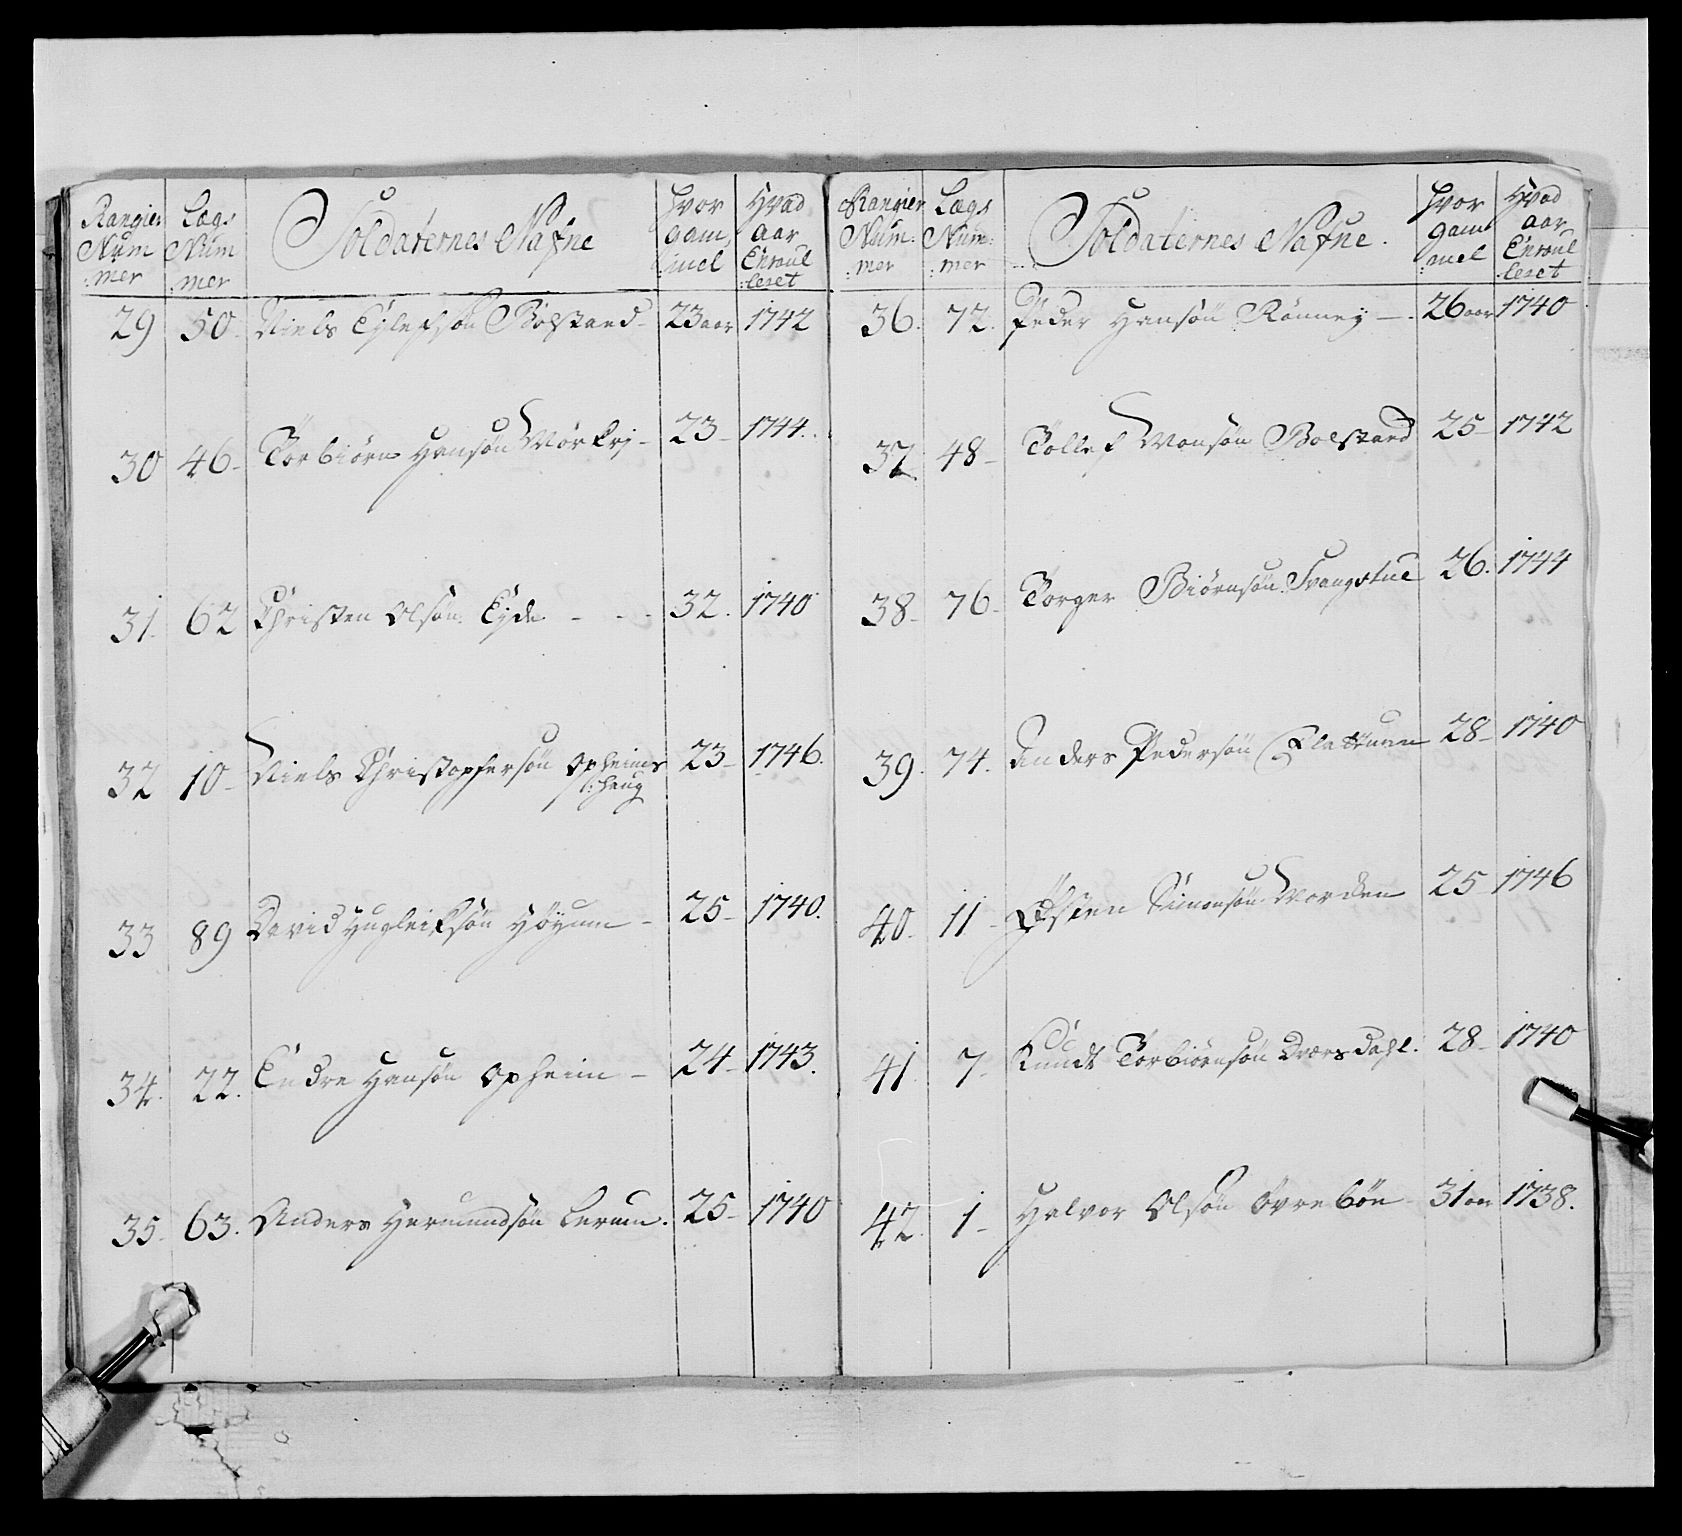 Rangier Num: mer | Lægs Num mer | Soldaternes Nafne | hvor gam: mel | Hvad aar Enroul: leret
29 | 50. | Niels Ejlefsøn Bolstard | 23 aar | 1742
30 | 46 | Torbiørn Hansøn Mørkrj | 23 | 1744.
31 | 62 | Christen Olsøn Eyde | 32. | 1740
32 | 10 | Niels Christophersøn Opheims | 23 | 1746.
:haug
33 | 89 | David Hugleiksøn Høyum | 25 | 1740.
34. | 22. | Endre Hansøn Opheim | 24 | 1743.
35. | 63. | Anders Hermundsøn Lerum. | 25 | 1740
Rangier Num: mer | Lægs Num: mer | Soldaternes Nafne. | hvor gam: mel | Hvad aar Enroul :leret
36. | 72. | Peder Hansøn Rønney | 26 aar | 1740
37 | 48 | Tollef Monsøn Bolstard | 25 | 1742
38 | 76 | Torger Biørnsøn Svangstue | 26. | 1744
39. | 74. | Anders Pedersøn | 28 | 1740
40. | 11 | Østen Simonsøn | 25 | 1746
41 | 7 | Knudt Torbiørnsøn Dversdahl. | 28 | 1740
42. | 1 | Halvor Olsøn Øvrebøe | 31 aar | 1738.